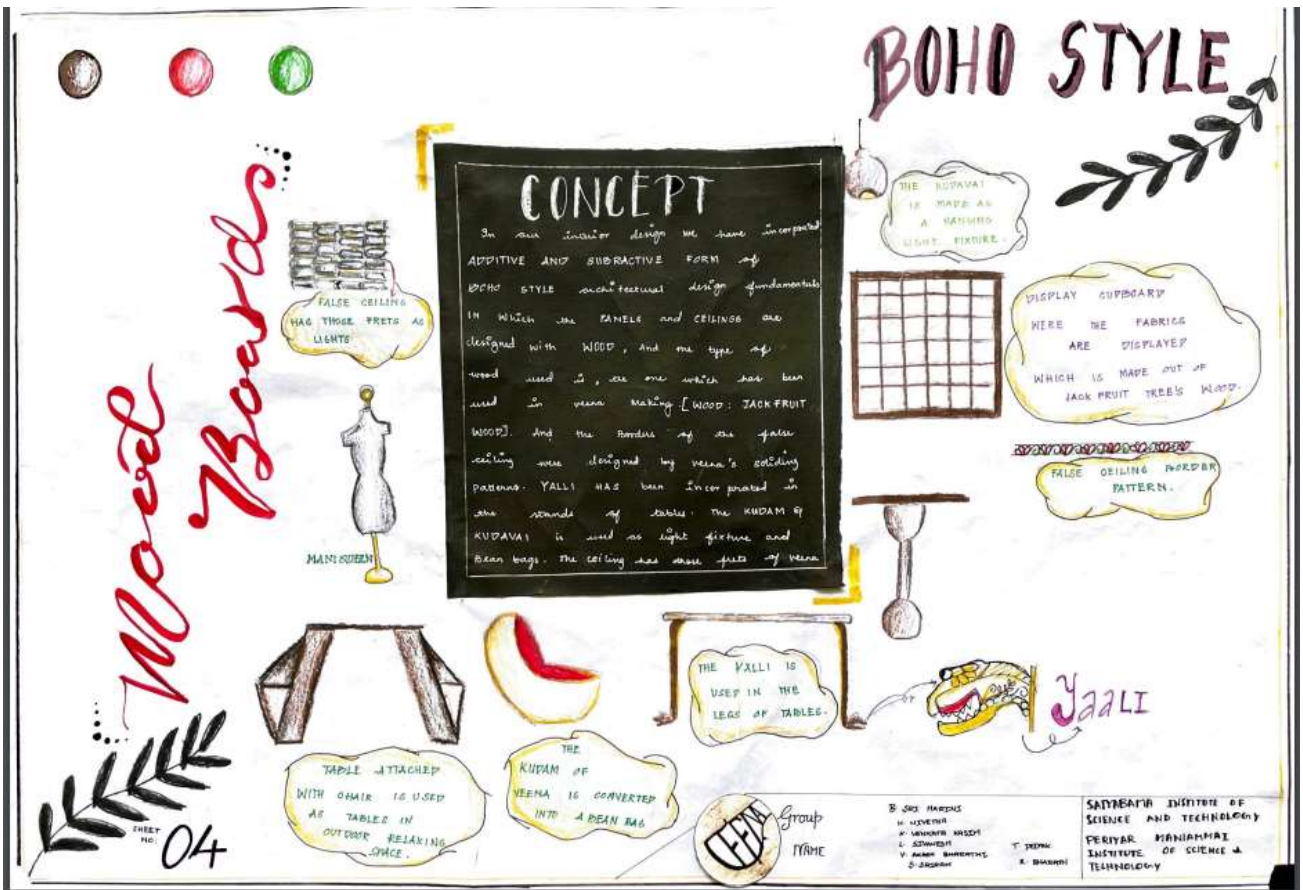 BOHO STYLE
Mood
Boards
CONCEPT
In our interior design we have incorprated
ADDITIVE AND SUBRACTIVE FORM of
BOHO STYLE architectural design fundamentals
IN which the PANELS and CEILINGS are
designed with WOOD, And the type of
wood used is, the one which has been
used in veena Making [WOOD: JACKFRUIT
WOOD]. And the Borders of the false
ceiling were designed by veena's
patterns. YALLI HAS been incorprated in
the stands of tables. The KUDAM &
KUDAVAI is used as light fixture and
Bean bags. The ceiling has those frets of veena
THE KUDAVAI
IS MADE AS
A HANGING
LIGHT FIXTURE.
FALSE CEILING
HAS THOSE FRETS AS
LIGHTS
DISPLAY CUPBOARD
WERE THE FABRICS
ARE DISPLAYED
WHICH IS MADE OUT OF
JACK FRUIT TREE'S WOOD.
FALSE CEILING BORDER
PATTERN.
MANISQUEEN
THE YALLI IS
USED IN THE
LEGS OF TABLES.
YaaLI
TABLE ATTACHED
WITH CHAIR IS USED
AS TABLES IN
OUTDOOR RELAXING
SPACE.
THE
KUDAM OF
VEENA IS CONVERTED
INTO A BEAN BAG
SHEET
NO: 04
Group
NAME
B. SRI HARINI
H. NIVETHA
K. VENKATA
L. SIVANESH
V. BHARATHI
T. DEEPAK
R. BHARATH
SATYABAMA INSTITUTE OF
SCIENCE AND TECHNOLOGY
PERIYAR MANIAMMAI
INSTITUTE OF SCIENCE &
TECHNOLOGY